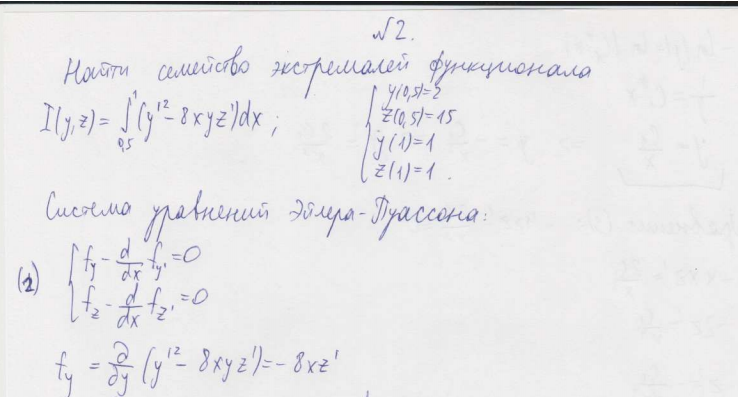 №2.
Найти семейство экстремалей функционала
I(y,z) = ∫_{0,5}^{1} (y'² - 8xyz')dx ; { y(0,5)=2
z(0,5)=15
y(1)=1
z(1)=1.
Система уравнений Эйлера-Пуассона:
(2) { f_y - d/dx f_y' = 0
f_z - d/dx f_z' = 0
f_y = ∂/∂y (y'² - 8xyz') = - 8xz'